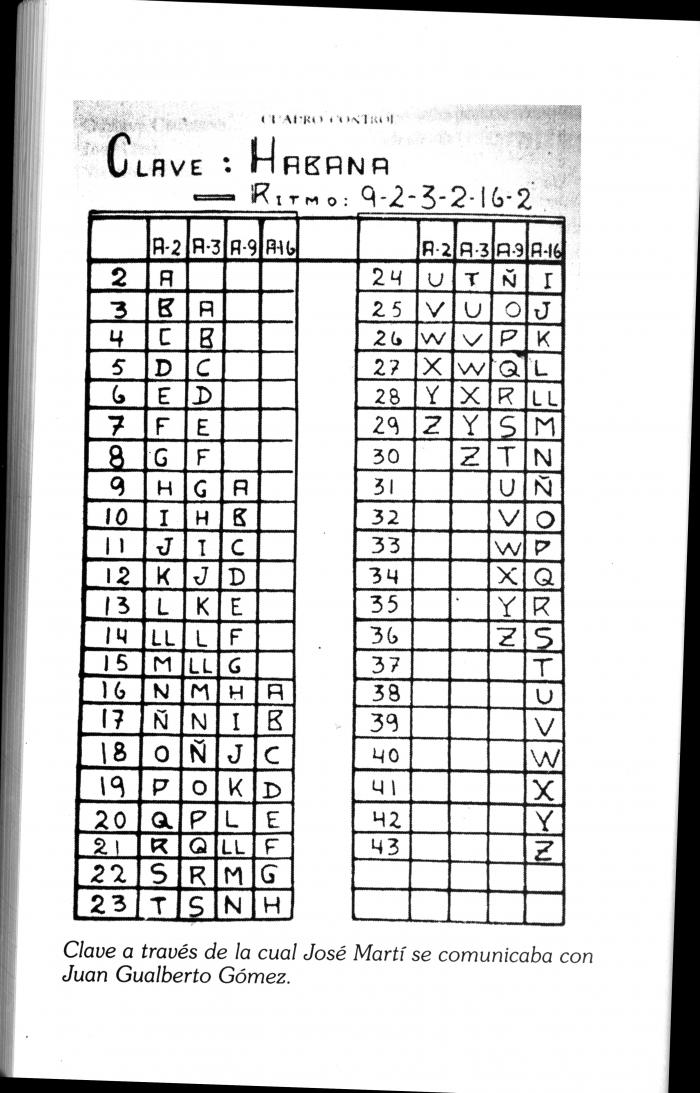 CUADRO CONTROL
CLAVE : HABANA
RITMO: 9-2-3-2-16-2
A-2 A-3 A-9 A-16 A-2 A-3 A-9 A-16
2 A 24 U T Ñ I
3 B A 25 V U O J
4 C B 26 W V P K
5 D C 27 X W Q L
6 E D 28 Y X R LL
7 F E 29 Z Y S M
8 G F 30 Z T N
9 H G A 31 U Ñ
10 I H B 32 V O
11 J I C 33 W P
12 K J D 34 X Q
13 L K E 35 Y R
14 LL L F 36 Z S
15 M LL G 37 T
16 N M H A 38 U
17 Ñ N I B 39 V
18 O Ñ J C 40 W
19 P O K D 41 X
20 Q P L E 42 Y
21 R Q LL F 43 Z
22 S R M G
23 T S N H
Clave a través de la cual José Martí se comunicaba con
Juan Gualberto Gómez.